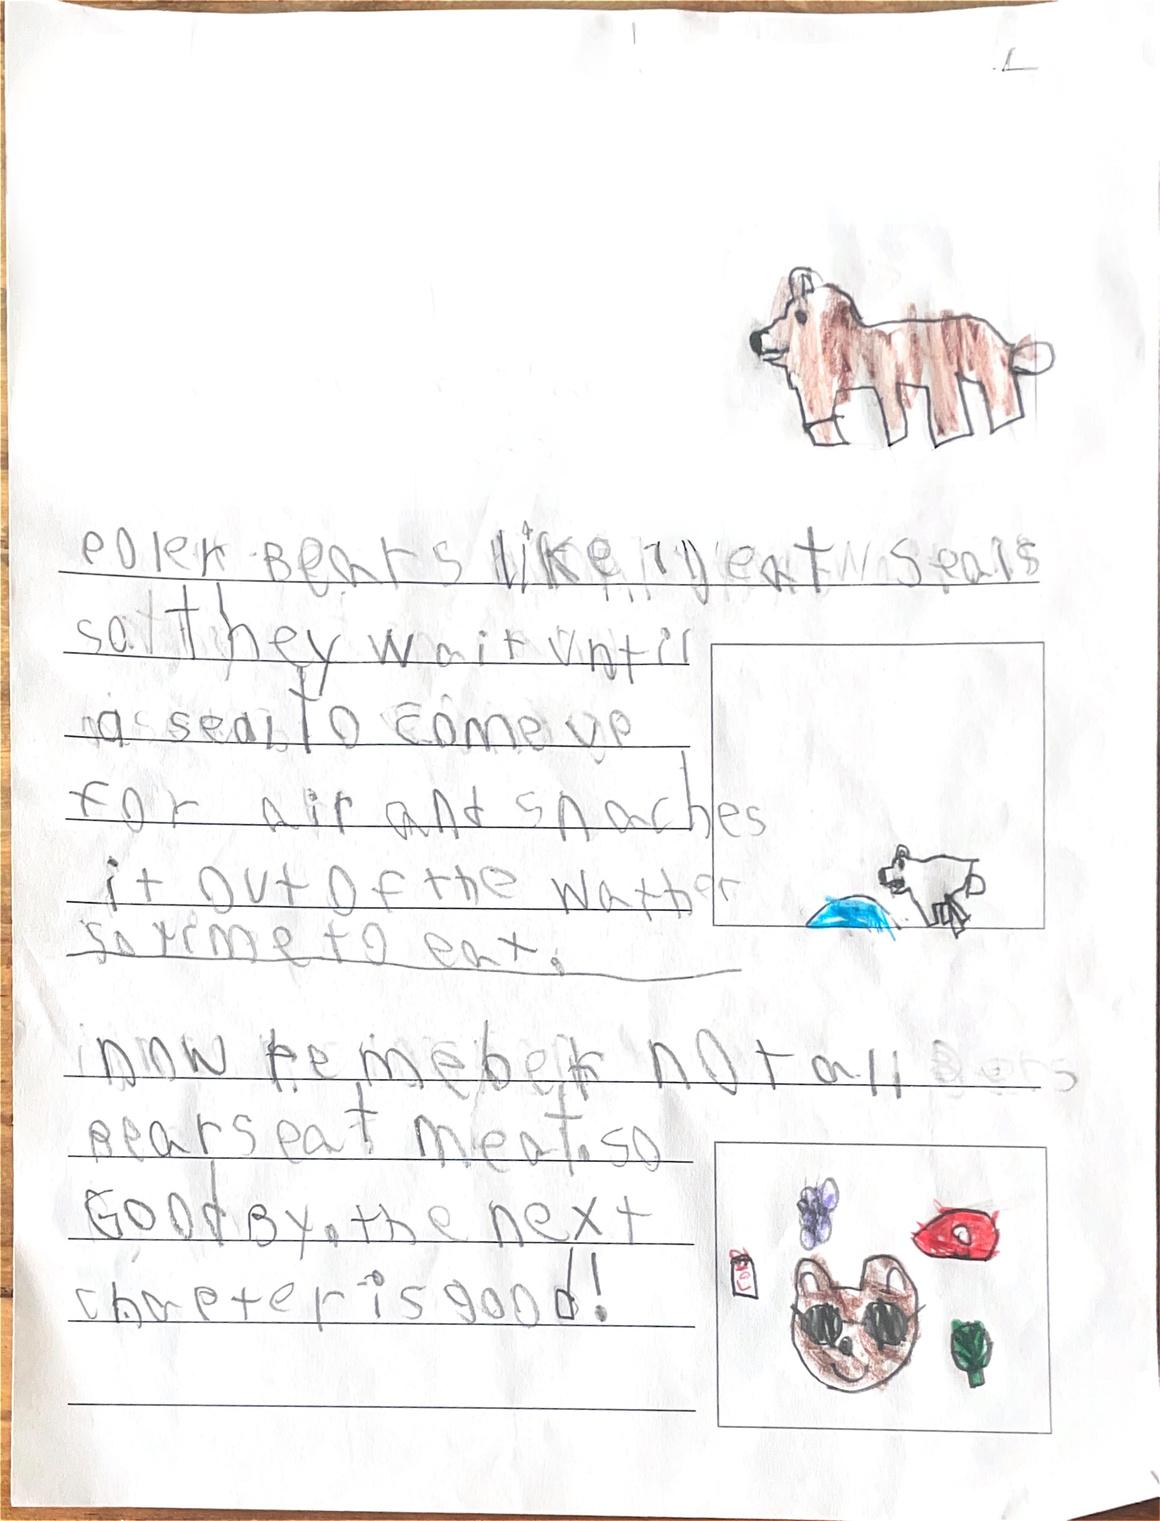 1
Poler Bears like to eat seals
so They wait until
a seal to come up
for air and snaches
it out of the wather
so rime to eat.
now remeber not all
Bears eat meat. so
Good By. the next
chapter is good!